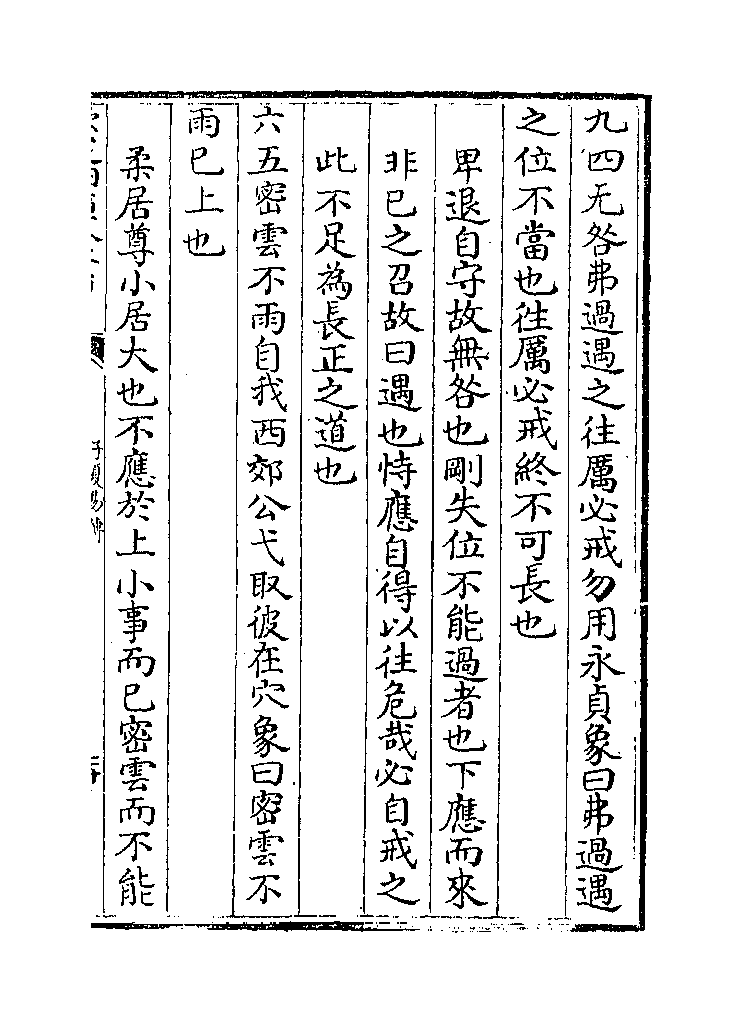 九四无咎弗過遇之往厲必戒勿用永貞象曰弗過遇
之位不當也往厲必戒終不可長也
卑退自守故無咎也剛失位不能過者也下應而來
非已之召故曰遇也恃應自得以往危哉必自戒之
此不足為長正之道也
六五密雲不雨自我西郊公弋取彼在穴象曰密雲不
雨已上也
柔居尊小居大也不應於上小事而已密雲而不能
子夏易傳